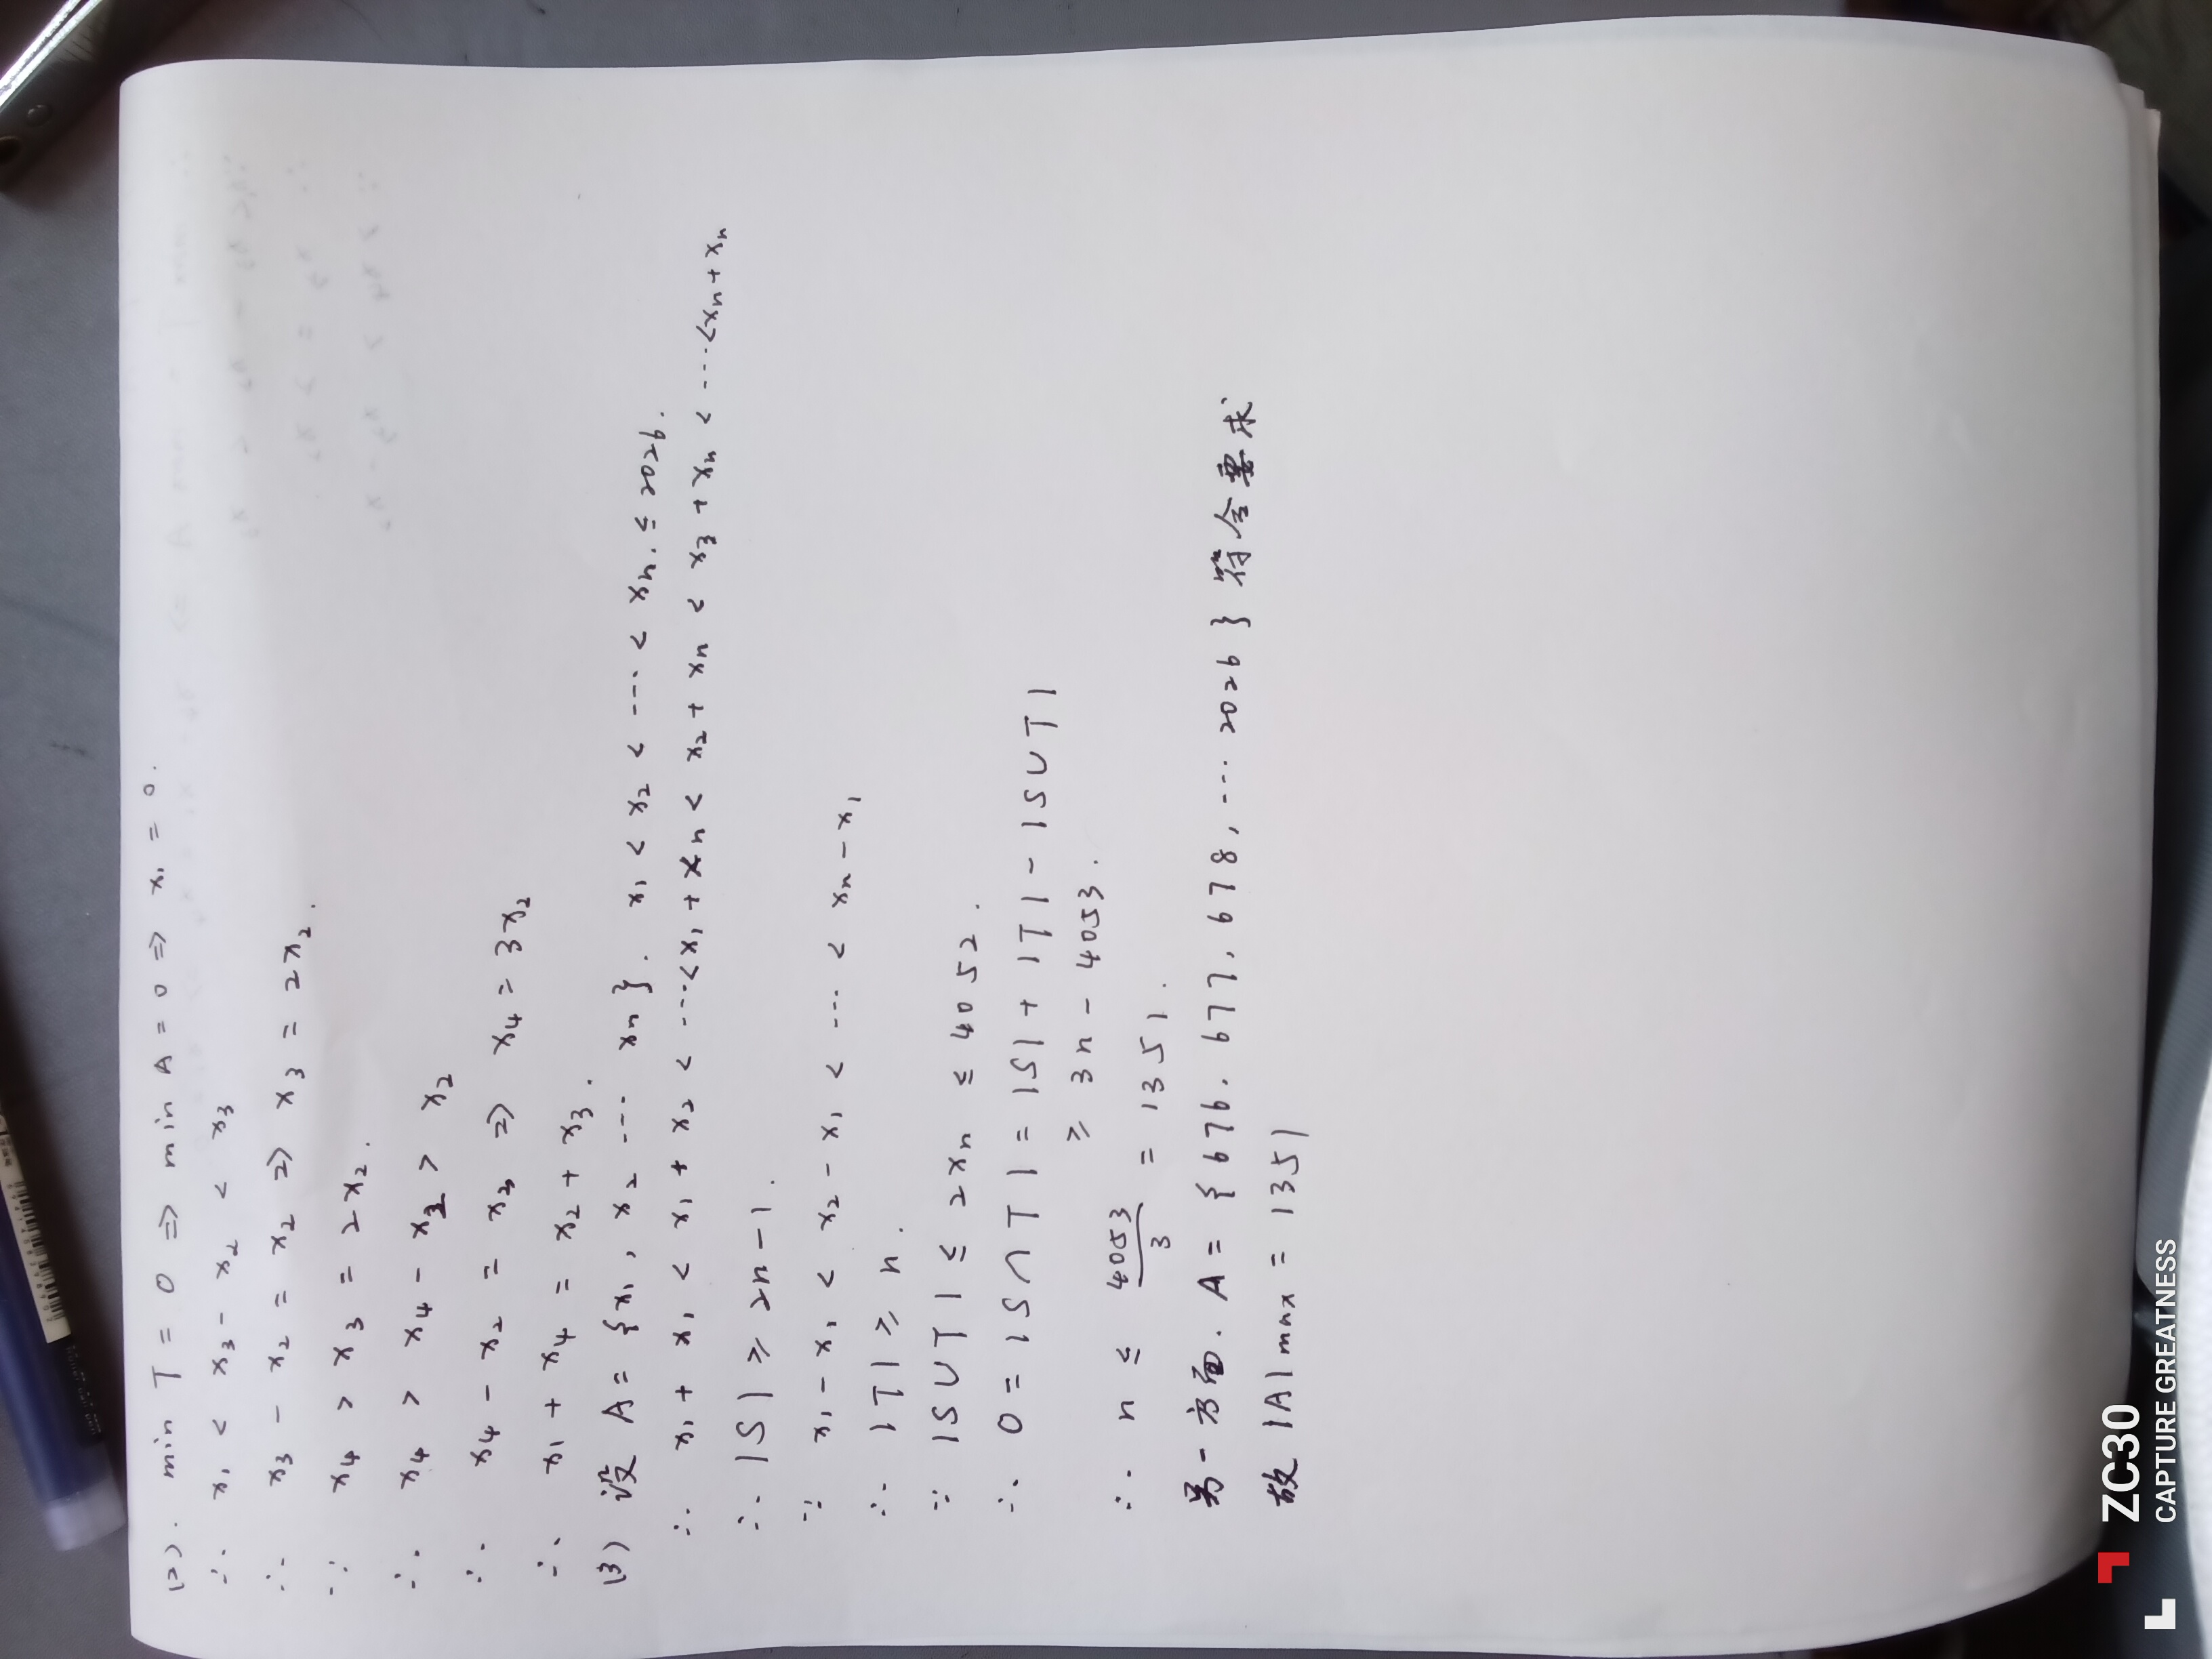 (2). min T = 0 ⇒ min A = 0 ⇒ x₁ = 0.
∴ x₁ < x₃ - x₂ < x₃
∴ x₃ - x₂ = x₂ ⇒ x₃ = 2x₂.
∵ x₄ > x₃ = 2x₂.
∴ x₄ > x₄ - x₂ > x₂
∴ x₄ - x₂ = x₃ ⇒ x₄ = 3x₂
∴ x₁ + x₄ = x₂ + x₃.
(3) 设 A = {x₁, x₂ ... xₙ}. x₁ < x₂ < ... < xₙ. ≤ 2026.
∴ x₁ + x₁ < x₁ + x₂ < ... < x₁ + xₙ < x₂ + xₙ < x₃ + xₙ < ... < xₙ + xₙ
∴ |S| ≥ 2n - 1.
∵ x₁ - x₁ < x₂ - x₁ < ... < xₙ - x₁
∴ |T| ≥ n.
∵ |S∪T| ≤ 2xₙ ≤ 4052.
∴ 0 = |S∩T| = |S| + |T| - |S∪T|
≥ 3n - 4053.
∴ n ≤ 4053/3 = 1351.
另一方面. A = {676, 677, 678, ... 2026} 符合要求
故 |A| max = 1351
ZC30
CAPTURE GREATNESS